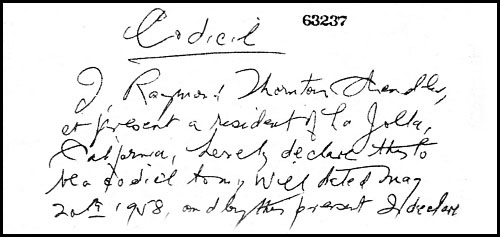 63237
Codicil
I, Raymond Thornton Chandler,
at present a resident of La Jolla,
California, hereby declare this to
be a codicil to my Will dated May
20th 1958, and by this present I declare